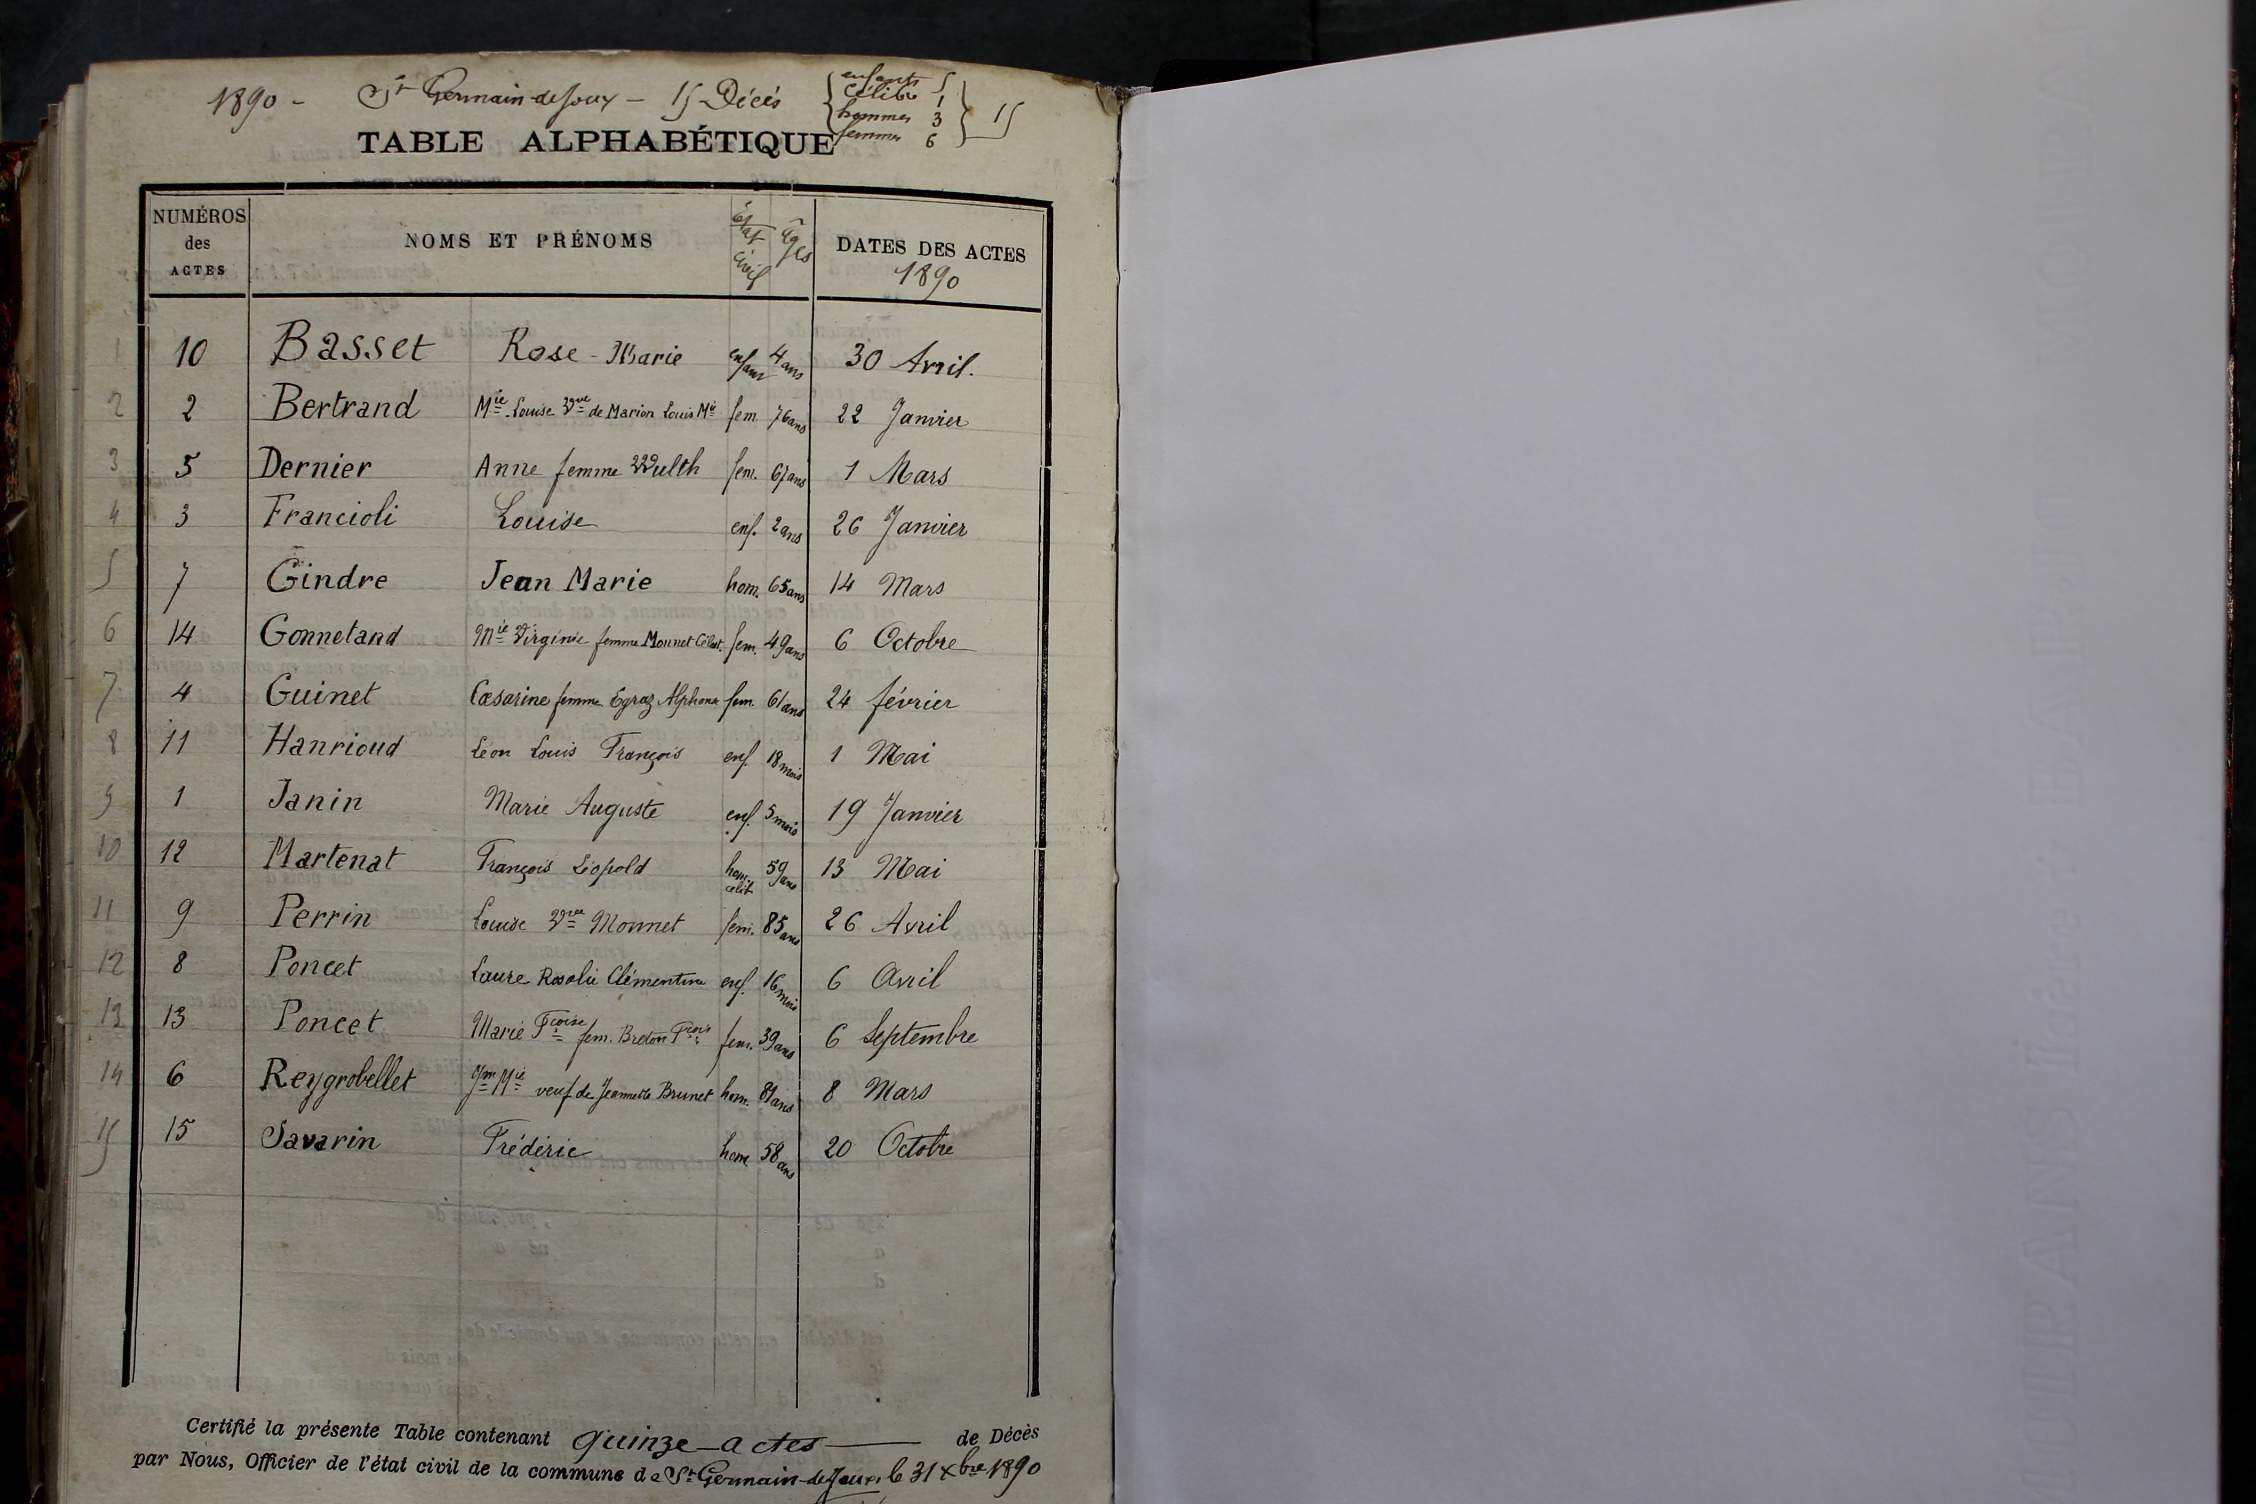 1890 - St Germain-de-Joux - 15 Décés
enfants 5
Célibe 1
hommes 3
femmes 6
15
TABLE ALPHABÉTIQUE
NUMÉROS des ACTES
NOMS ET PRÉNOMS
État civil
âges
DATES DES ACTES
1890
1 10 Basset Rose-Marie enfant 4 ans 30 Avril.
2 2 Bertrand Mie Louise Vve de Marion Louis Mie fem. 76 ans 22 Janvier
3 5 Dernier Anne femme Wulth fem. 67 ans 1 Mars
4 3 Francioli Louise enf. 2 ans 26 Janvier
5 7 Gindre Jean Marie hom. 65 ans 14 Mars
6 14 Gonnetand Mie Virginie femme Monnet Célest. fem. 49 ans 6 Octobre
7 4 Guinet Cæsarine femme Egraz Alphonse fem. 61 ans 24 février
8 11 Hanrioud Léon Louis François enf. 18 mois 1 Mai
9 1 Janin Marie Auguste enf. 5 mois 19 Janvier
10 12 Martenat François Léopold hom. célib 59 ans 13 Mai
11 9 Perrin Louise Vve Monnet fem. 85 ans 26 Avril
12 8 Poncet Laure Rosalie Clémentine enf. 16 mois 6 Avril
13 13 Poncet Marie Fcoise fem. Breton Fcois fem. 39 ans 6 Septembre
14 6 Reygrobellet Jn Mie veuf de Jeannette Brunet hom. 81 ans 8 Mars
15 15 Savarin Frédéric hom 58 ans 20 Octobre
Certifié la présente Table contenant quinze actes de Décès
par Nous, Officier de l'état civil de la commune de St Germain-de-Joux, le 31 Xbre 1890